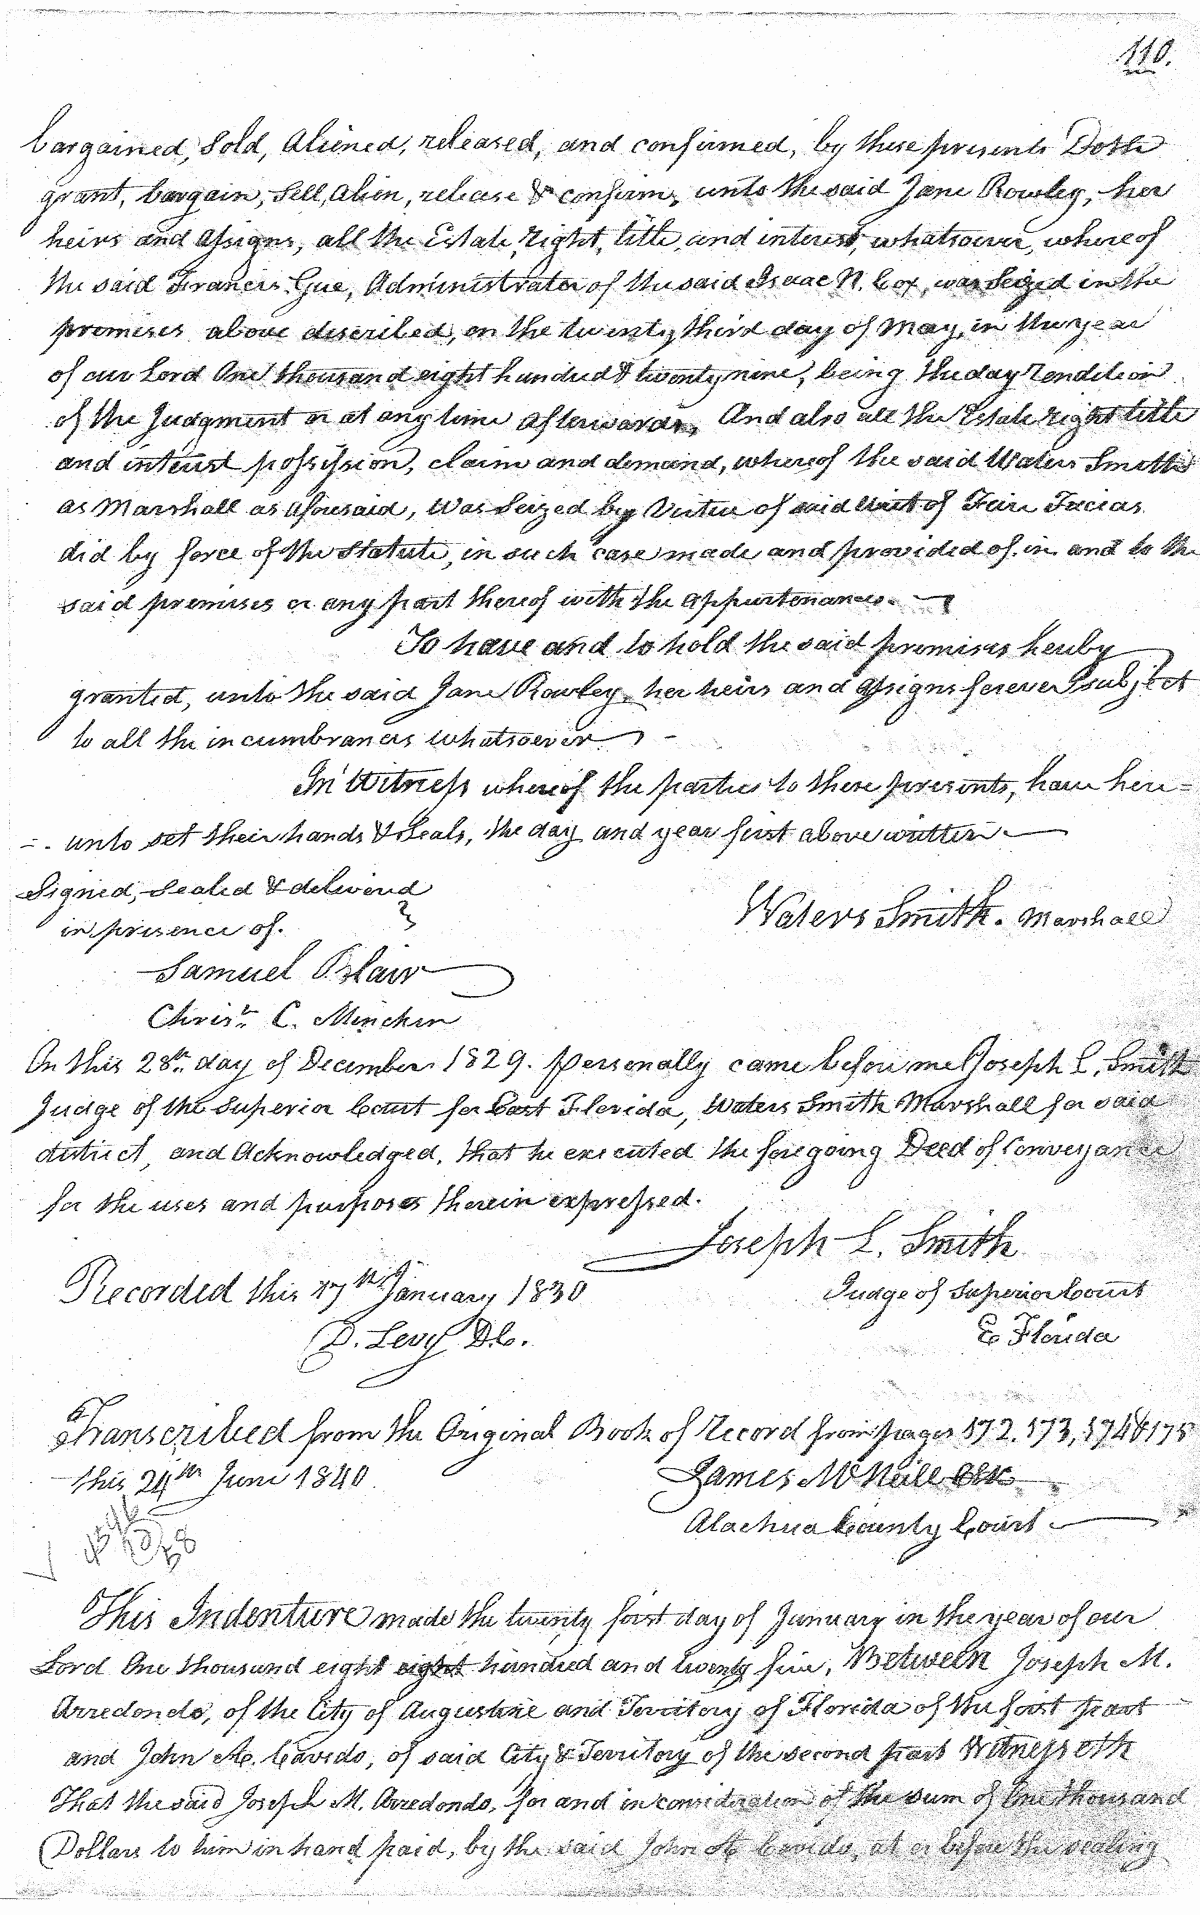 110.
bargained, Sold, Aliened, released, and confirmed, by these presents Doth
grant, bargain, Sell, Alien, release & confirm, unto the said Jane Rowley, her
heirs and Assigns, all the Estate, right, title, and interest, whatsoever, whereof
the said Francis Gue, Administrator of the said Isaac N. Cox, was Seized in the
premises above described, on the twenty third day of May, in the year
of our Lord One thousand eight hundred & twenty nine, being the day rendition
of the Judgment or at any time afterwards, And also all the Estate right title
and interest possession, claim and demand, whereof the said Waters Smith
as Marshall as aforesaid, was Seized by Virtue of said Writ of Fieri Facias
did by force of the Statute, in such case made and provided of, in and to the
said premises or any part thereof with the appurtenances.
To have and to hold the said premises hereby
granted, unto the said Jane Rowley, her heirs and Assigns forever subject
to all the incumbrances whatsoever
In Witness whereof the parties to these presents, have here=
=unto set their hands & Seals, the day and year first above written
Signed, Sealed & delivered
in presence of.
Waters Smith. Marshall
Samuel Blair
Chrisr. C. Minchin
On this 28th day of December 1829. personally came before me Joseph L. Smith
Judge of the Superior Court for East Florida, Waters Smith Marshall for said
district, and Acknowledged, that he executed the foregoing Deed of Conveyance
for the uses and purposes therein expressed.
Joseph L. Smith
Recorded this 17th January 1830
Judge of Superior Court
D. Levy D.C.
E Florida
Transcribed from the Original Book of Record from pages 172, 173, 174 & 175
this 24th June 1840
James McNeill Clk
Alachua County Court
This Indenture made the twenty first day of January in the year of our
Lord One thousand eight eight hundred and twenty five, Between Joseph M.
Arredondo, of the City of Augustine and Territory of Florida of the first part
and John M. Cavedo, of said City & Territory of the second part Witnesseth
That the said Joseph M. Arredondo, for and in consideration of the sum of One thousand
Dollars to him in hand paid, by the said John M Cavedo, at or before the sealing